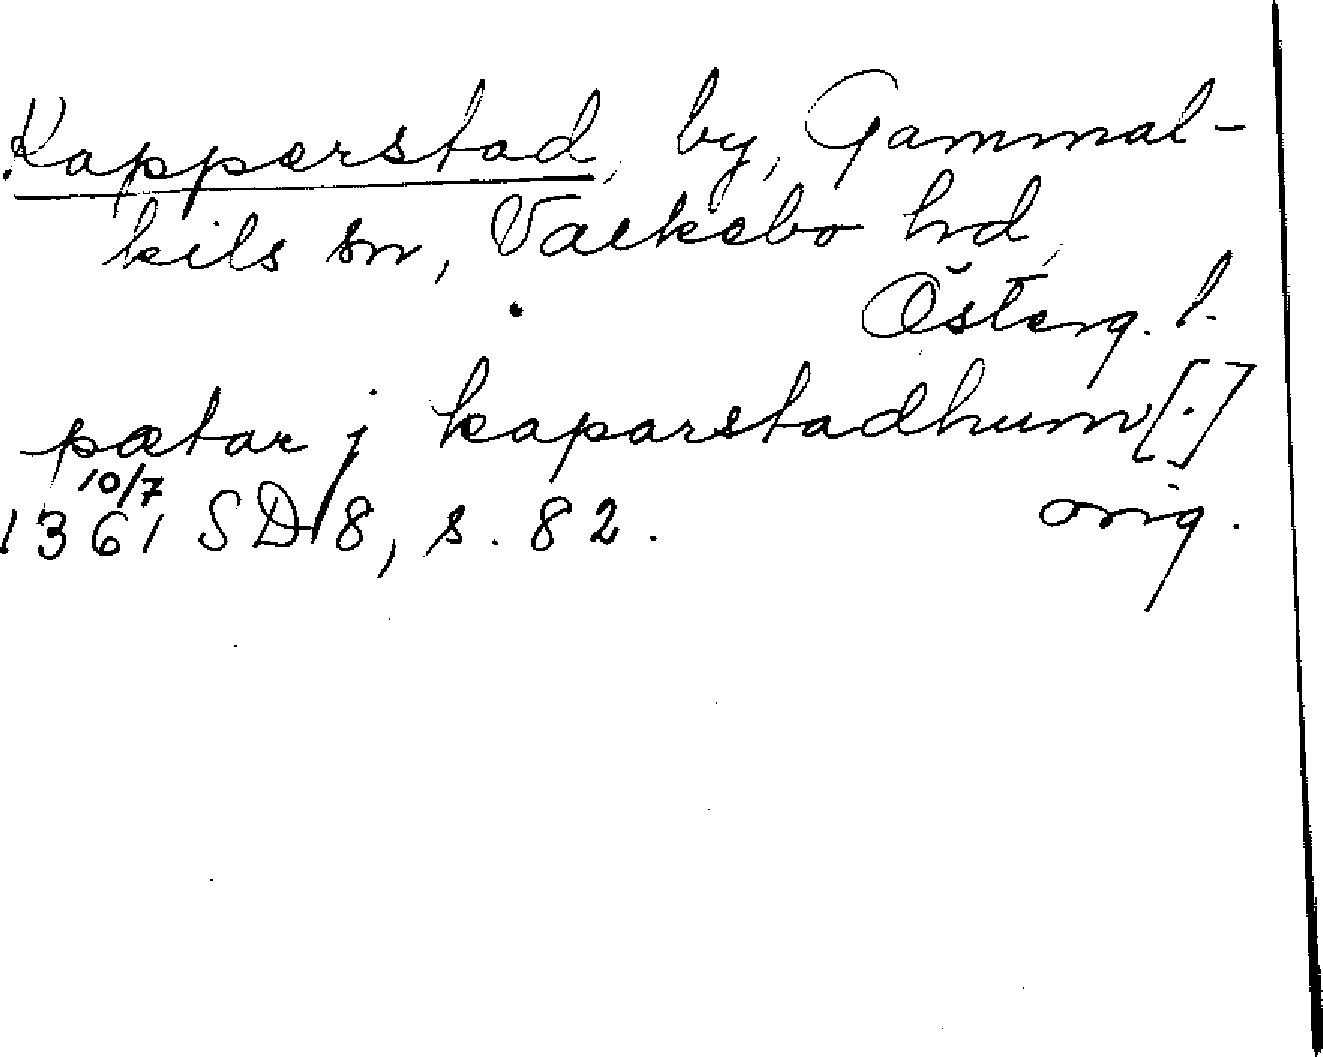 Kapperstad, by, Gammal-
kils sn, Valkebo hd,
Österg. l.
pætar j kaparstadhum [.]
10/7
1361 SD 8, s. 82. orig.